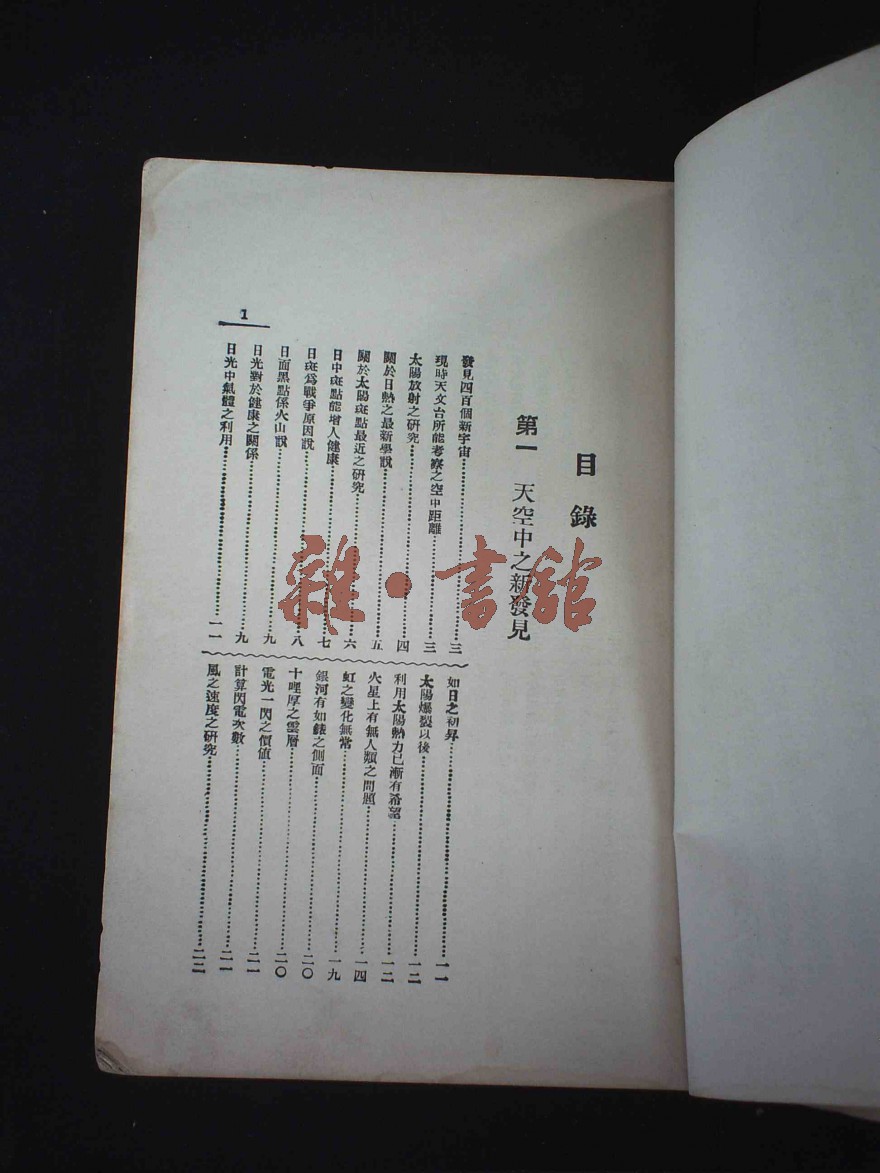 目錄
第一 天空中之新發見
發見四百個新宇宙……三
現時天文台所能考察之空中距離……三
太陽放射之研究……四
關於日熱之最新學說……五
關於太陽斑點最近之研究……六
日中斑點能增人健康……七
日斑爲戰爭原因說……八
日面黑點係火山說……九
日光對於健康之關係……九
日光中氣體之利用……一一
如日之初昇……一一
太陽爆裂以後……一二
利用太陽熱力已漸有希望……一二
火星上有無人類之問題……一四
虹之變化無常……一九
銀河有如錶之側面……二〇
十哩厚之雲層……二〇
電光一閃之價値……二一
計算閃電次數……二一
風之速度之研究……二二
1
雜·書館